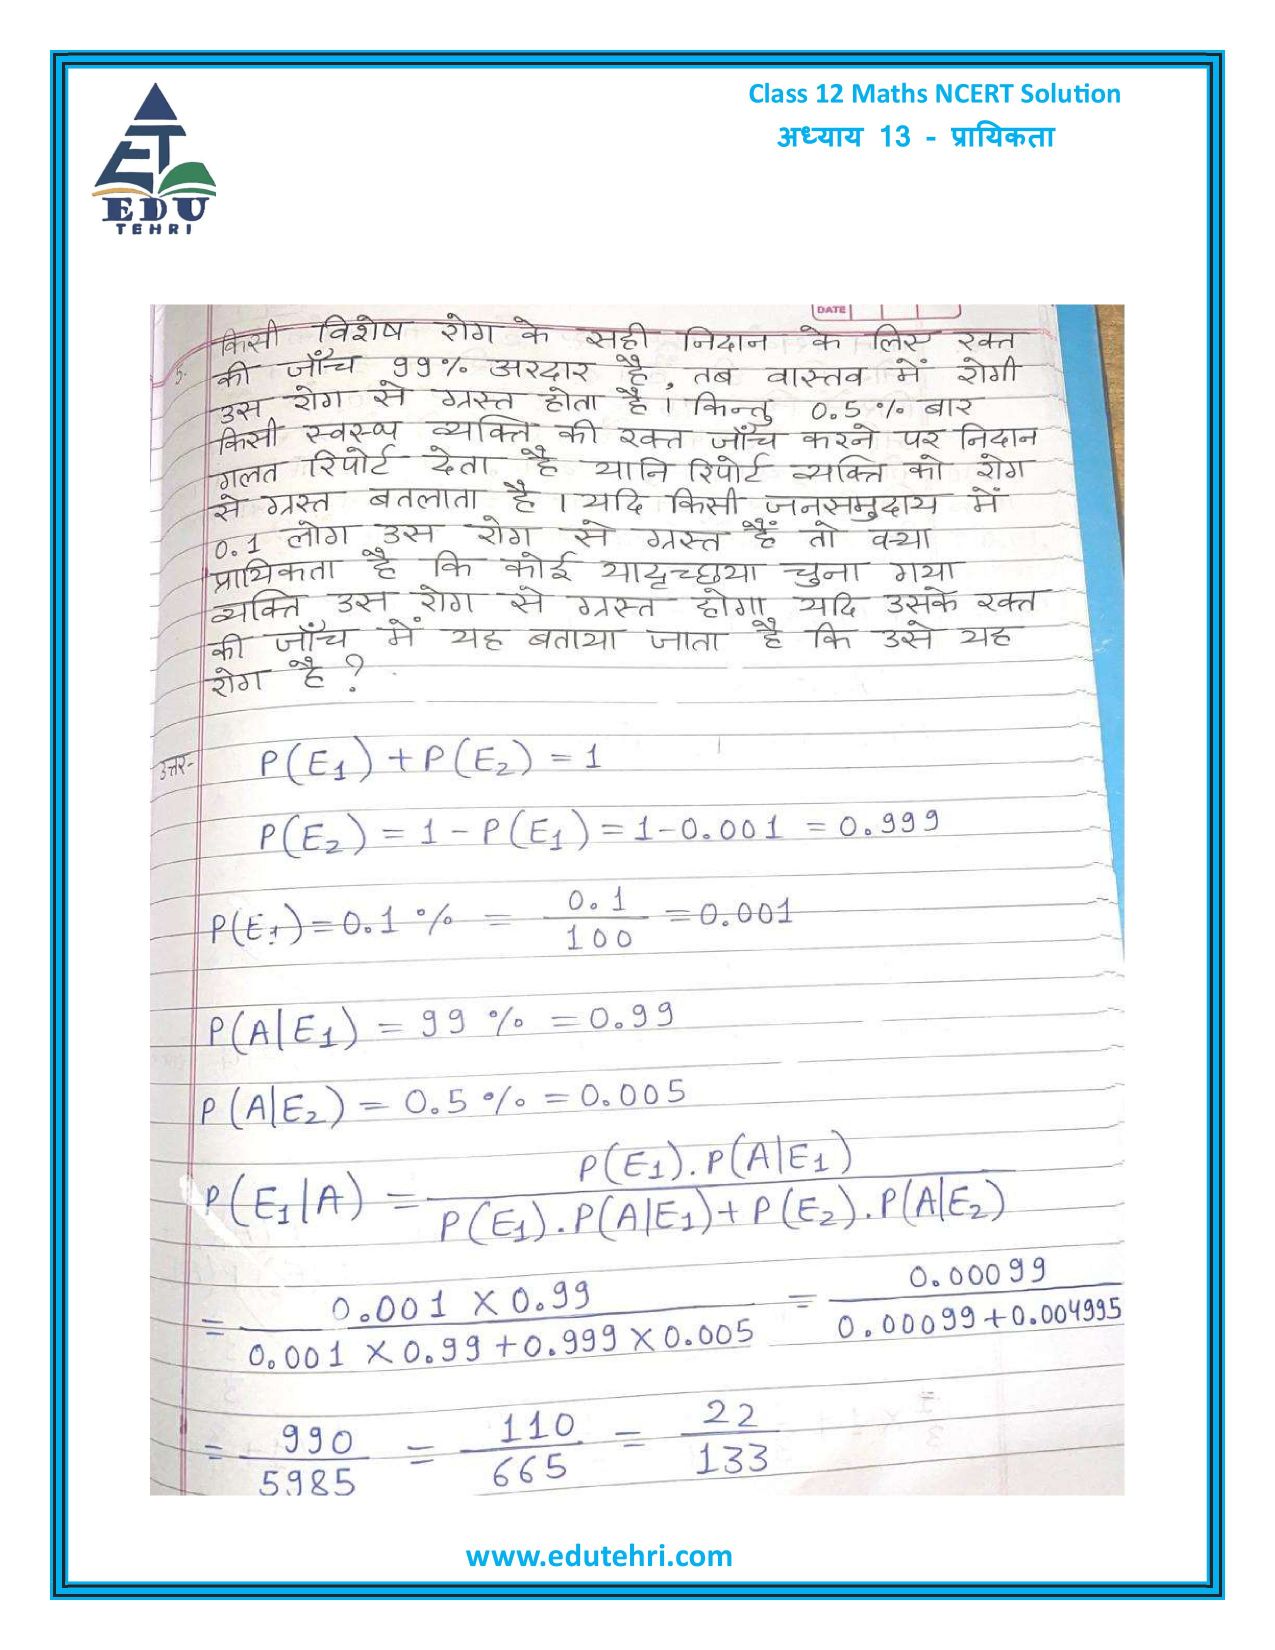 Class 12 Maths NCERT Solution
अध्याय 13 - प्रायिकता
EDU
TEHRI
DATE
5. किसी विशेष रोग के सही निदान के लिए रक्त
की जाँच 99% असरदार है, तब वास्तव में रोगी
उस रोग से ग्रस्त होता है। किन्तु 0.5% बार
किसी स्वस्थ व्यक्ति की रक्त जाँच करने पर निदान
गलत रिपोर्ट देता है यानि रिपोर्ट व्यक्ति को रोग
से ग्रस्त बतलाता है। यदि किसी जनसमुदाय में
0.1 लोग उस रोग से ग्रस्त हैं तो क्या
प्रायिकता है कि कोई यादृच्छया चुना गया
व्यक्ति उस रोग से ग्रस्त होगा यदि उसके रक्त
की जाँच में यह बताया जाता है कि उसे यह
रोग है ?
उत्तर- P(E₁) + P(E₂) = 1
P(E₂) = 1 - P(E₁) = 1 - 0.001 = 0.999
P(E₁) = 0.1 % = 0.1/100 = 0.001
P(A|E₁) = 99 % = 0.99
P(A|E₂) = 0.5 % = 0.005
P(E₁|A) = P(E₁).P(A|E₁) / P(E₁).P(A|E₁) + P(E₂).P(A|E₂)
= 0.001 × 0.99 / 0.001 × 0.99 + 0.999 × 0.005 = 0.00099 / 0.00099 + 0.004995
= 990/5985 = 110/665 = 22/133
www.edutehri.com